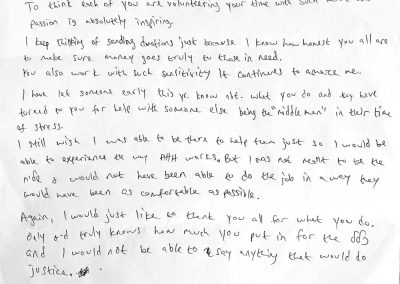 To think each of you are volunteering your time with such
passion is absolutely inspiring.
I keep thinking of sending donations just because I know how honest you all are
to make sure money goes truly to those in need.
You also work with such sensitivity It continues to amaze me.
I have let someone early this yr. know abt. what you do and they have
turned to you for help with someone else being the "middle man" in their time
of stress.
I still wish I was able to be there to help them just so I would be
able to experience the way works. But I was not meant to be the
would not have been able to do the job in a way they
would have been as comfortable as possible.
Again, I would just like to thank you all for what you do.
Only G-d truly knows how much you put in for the
and I would not be able to say anything that would do
justice.